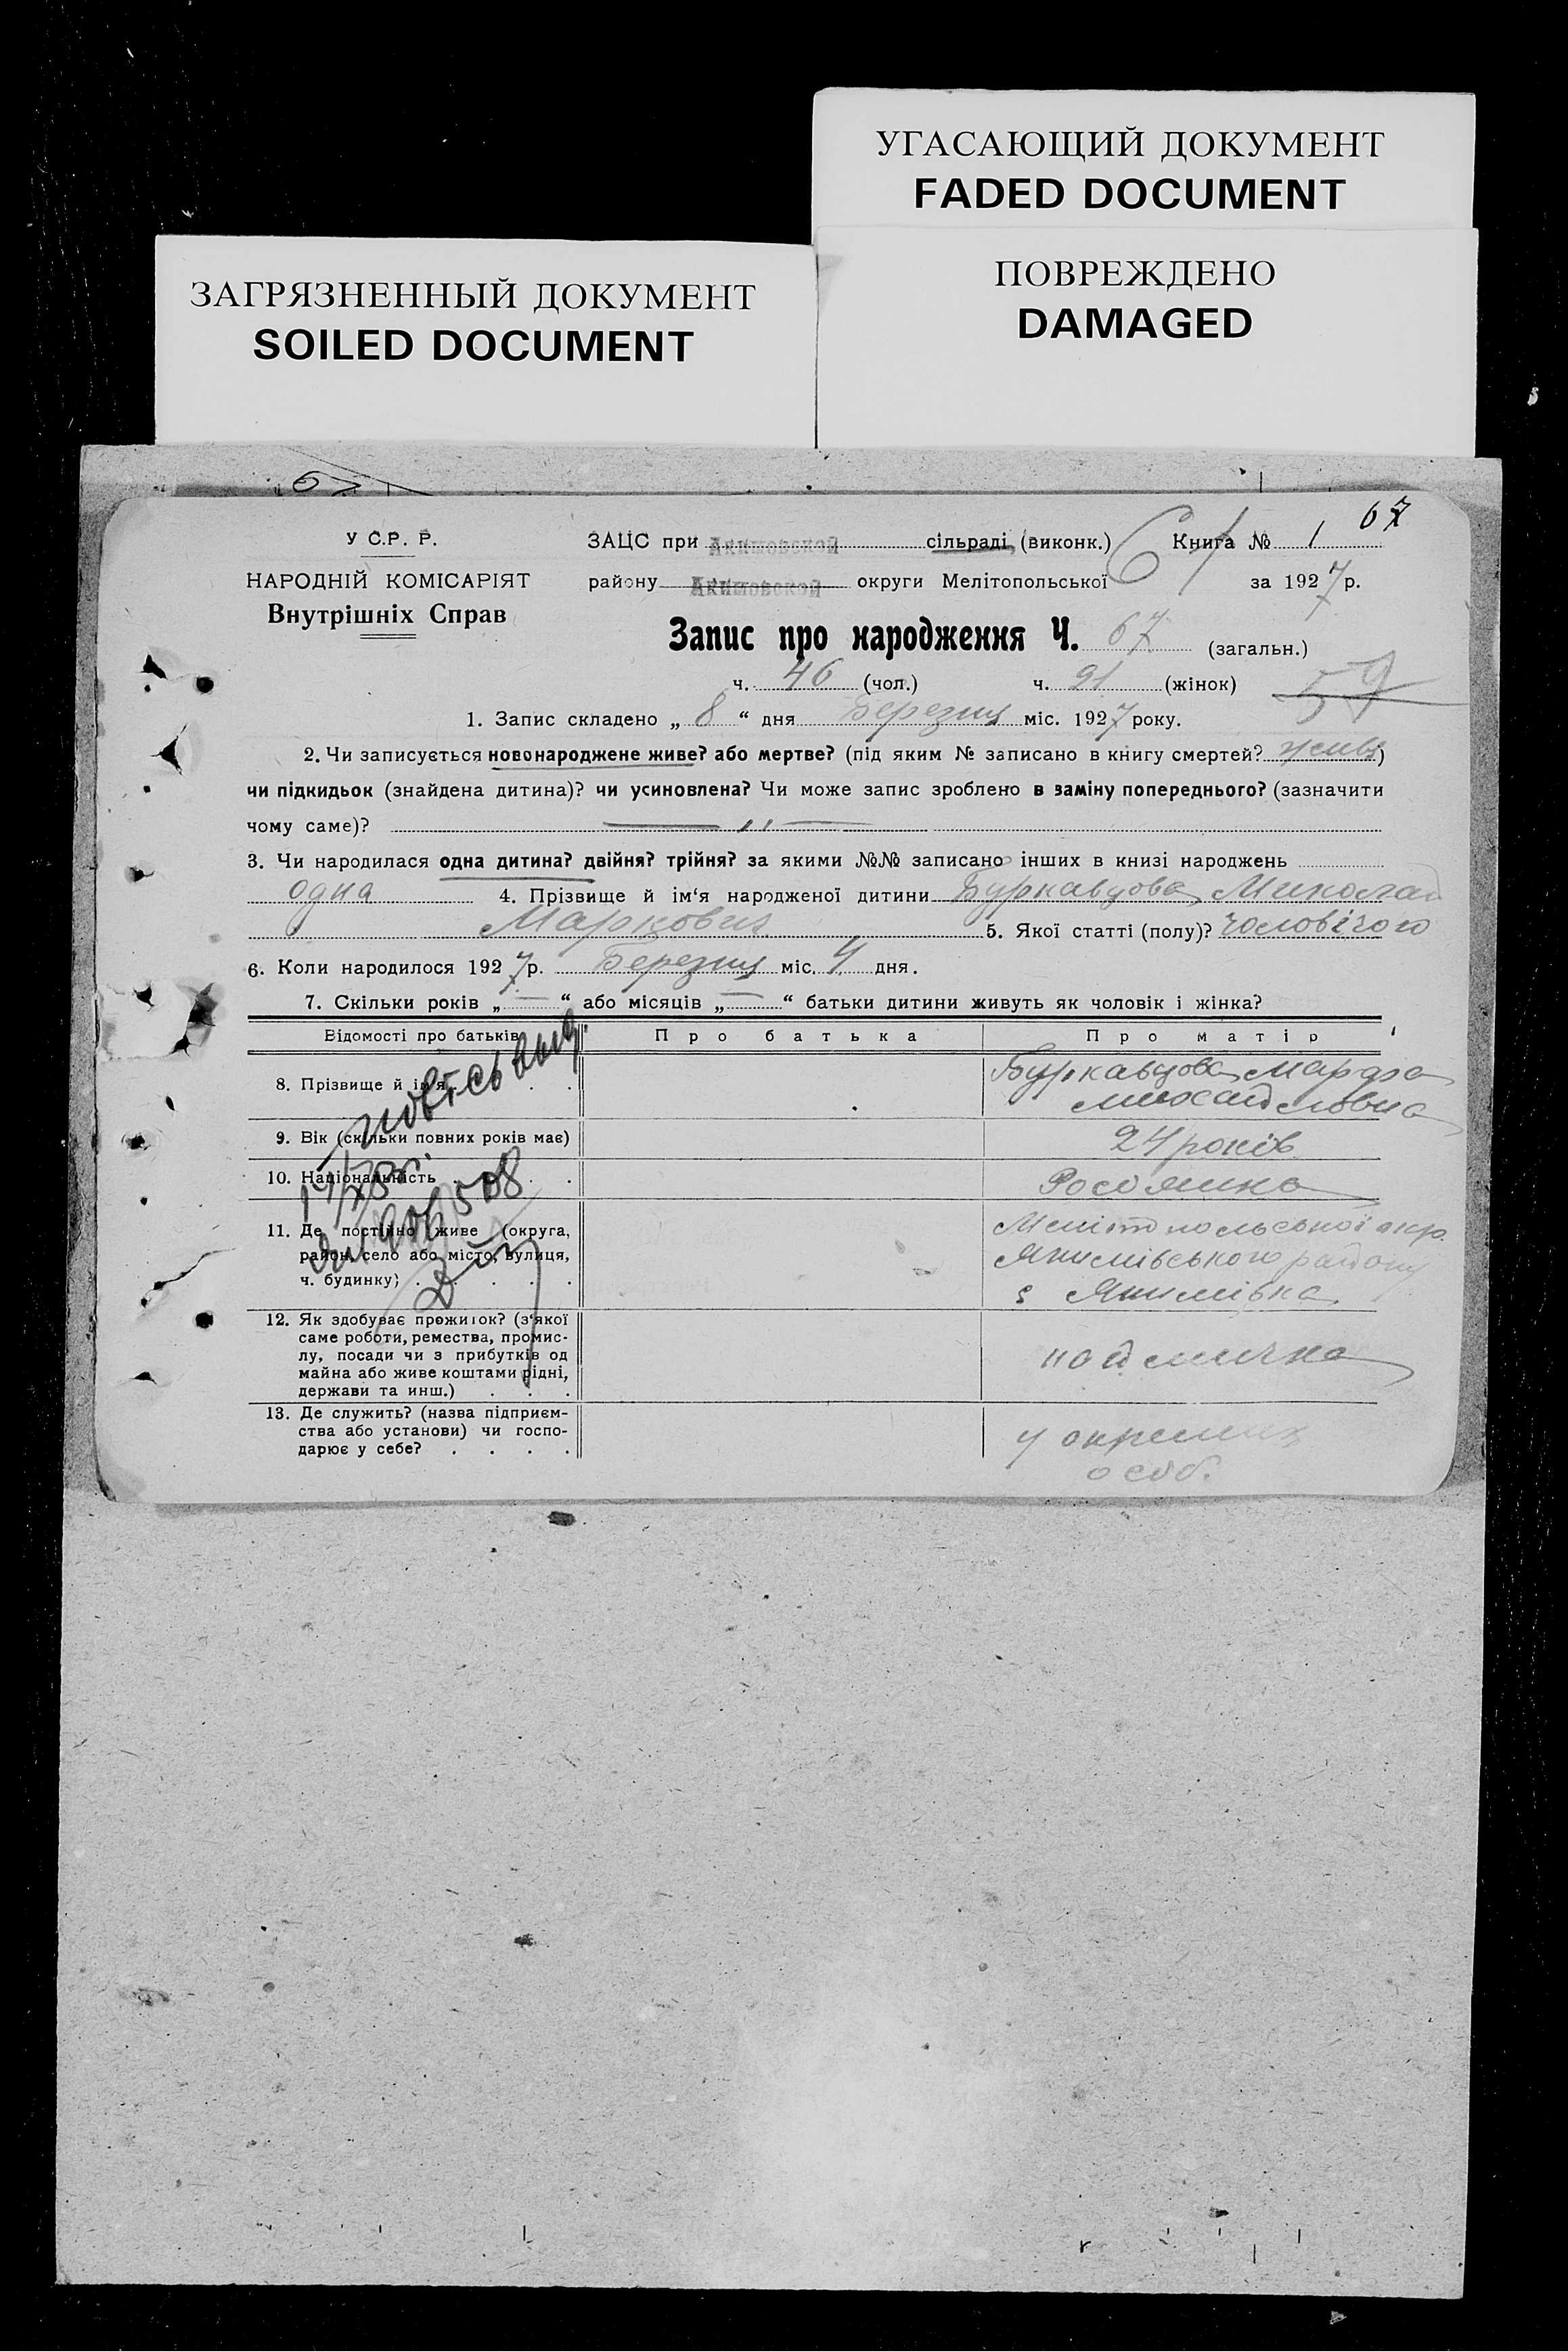 УГАСАЮЩИЙ ДОКУМЕНТ
FADED DOCUMENT
ЗАГРЯЗНЕННЫЙ ДОКУМЕНТ
SOILED DOCUMENT
ПОВРЕЖДЕНО
DAMAGED
67
У С.Р. Р.
ЗАЦС при Акимовской сільраді, (виконк.) Книга № 1
НАРОДНІЙ КОМІСАРІЯТ
Внутрішніх Справ
району Акимовской округи Мелітопольської за 1927 р.
Запис про народження Ч. 67 (загальн.)
ч. 46 (чол.) ч. 21 (жінок)
1. Запис складено „ 8 “ дня Березня міс. 1927 року.
2. Чи записується новонароджене живе? або мертве? (під яким № записано в книгу смертей? живе)
чи підкидьок (знайдена дитина)? чи усиновлена? Чи може запис зроблено в заміну попереднього? (зазначити
чому саме)? — „ —
3. Чи народилася одна дитина? двійня? трійня? за якими №№ записано інших в книзі народжень
одна 4. Прізвище й ім‘я народженої дитини Буркавцова Миколай
Маркович 5. Якої статті (полу)? чоловічого
6. Коли народилося 1927 р. Березня міс. 4 дня.
7. Скільки років „ — “ або місяців „ — “ батьки дитини живуть як чоловік і жінка?
Відомості про батьків Про батька Про матір
8. Прізвище й ім‘я . . . Буркавцова Марфа
Михайловна
9. Вік (скільки повних років має) 24 років
10. Національність . . . Росіянка
11. Де постійно живе (округа, Мелітопольської окр.
район, село або місто, вулиця, Якимівського району
ч. будинку) . . . . . с Якимівка
12. Як здобуває прожиток? (з‘якої
саме роботи, ремества, промис-
лу, посади чи з прибутків од наймичка
майна або живе коштами рідні,
держави та инш.) . . .
13. Де служить? (назва підприєм-
ства або установи) чи госпо- у окремих
дарює у себе? . . . . особ.